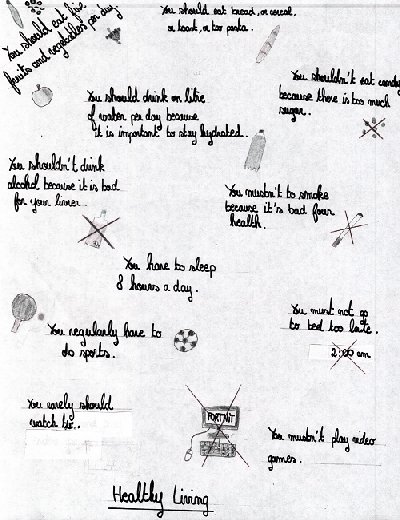 You should eat five
fruits and vegetables per day.
You should eat bread, or cereal
or toast, or too pasta.
You shouldn't eat candy
because there is too much
sugar.
You should drink on litre
of water per day because
it is important to stay hydrated.
You shouldn't drink
alcohol because it is bad
for your liver.
You mustn't to smoke
because it's bad four
health.
You have to sleep
8 hours a day.
You must not go
to bed too late.
2:00 am
You regularly have to
do sports.
You rarely should
watch tv.
FORTNIT
You mustn't play video
games.
Healthy Living